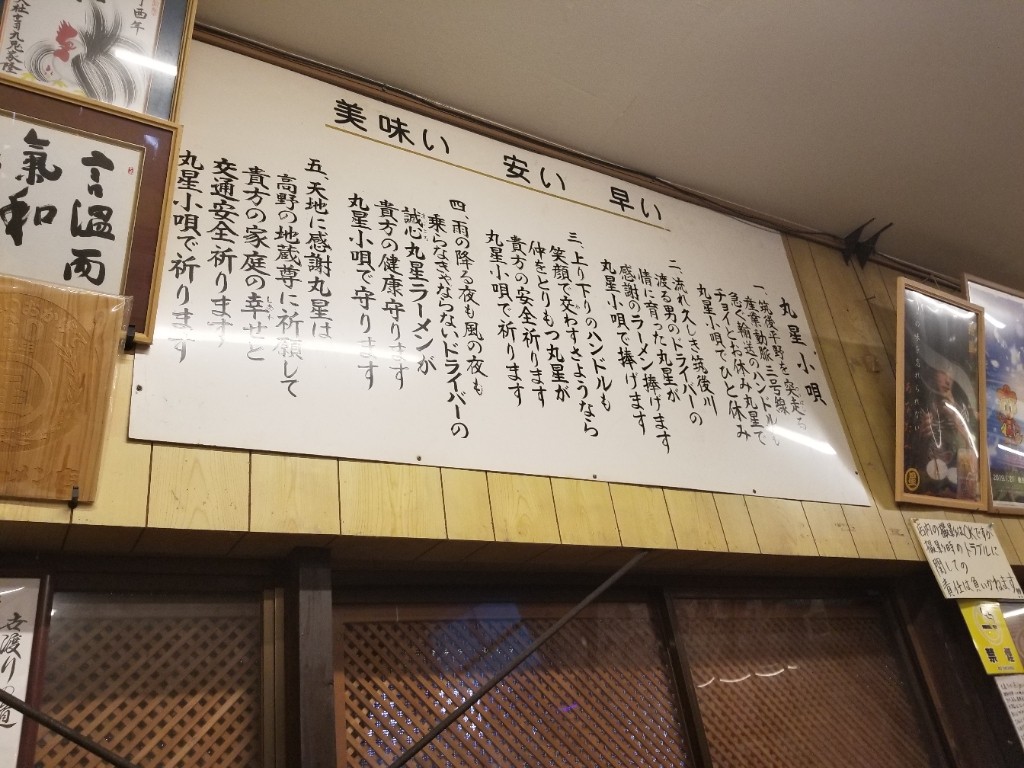 美味い 安い 早い
丸星小唄
一、筑後平野を突走る
産業動脈三号線
急ぐ輸送のハンドルも
チョイとお休み丸星で
丸星小唄でひと休み
二、流れ久しき筑後川
渡る男のドライバーの
情に育った丸星が
感謝のラーメン捧げます
丸星小唄で捧げます
三、上り下りのハンドルも
笑顔で交わすさようなら
仲をとりもつ丸星が
貴方の安全祈ります
丸星小唄で祈ります
四、雨の降る夜も風の夜も
乗らなきゃならないドライバーの
誠心丸星ラーメンが
貴方の健康守ります
丸星小唄で守ります
五、天地に感謝丸星は
高野の地蔵尊に祈願して
貴方の家庭の幸せと
交通安全祈ります
丸星小唄で祈ります
酉年
言温而
氣和
世渡りの道
関しての
責任は負いかねます
禁煙